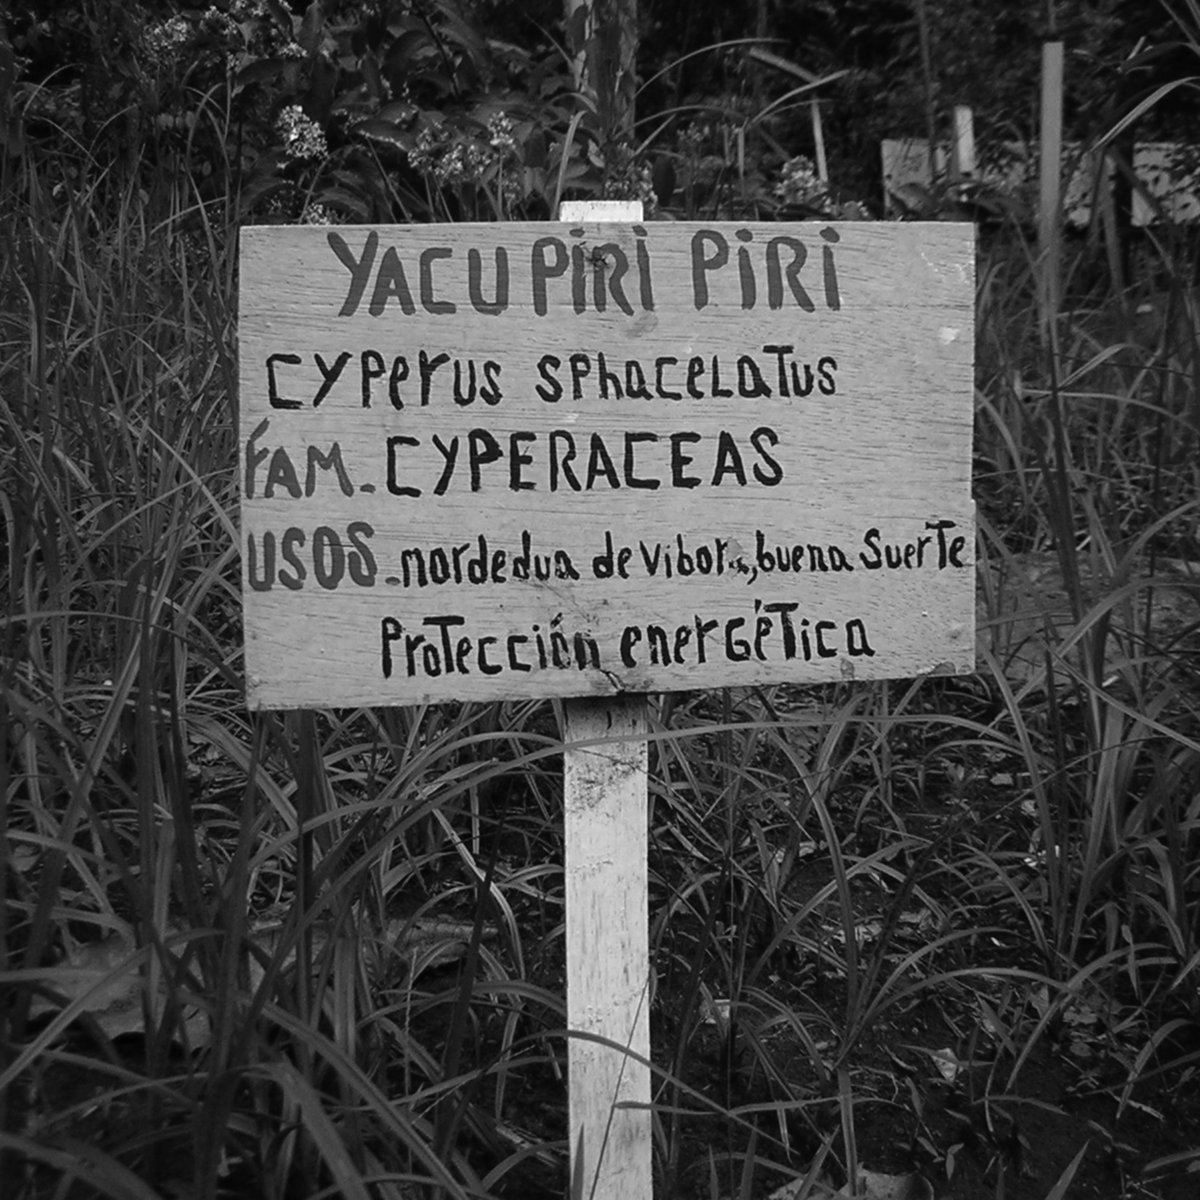 YACU PiRi PiRi
CYPerus sphaceLaTus
FAM. CYPERACEAS
USOS. mordedua de vibora, buena SuerTe
ProTección enerGéTica